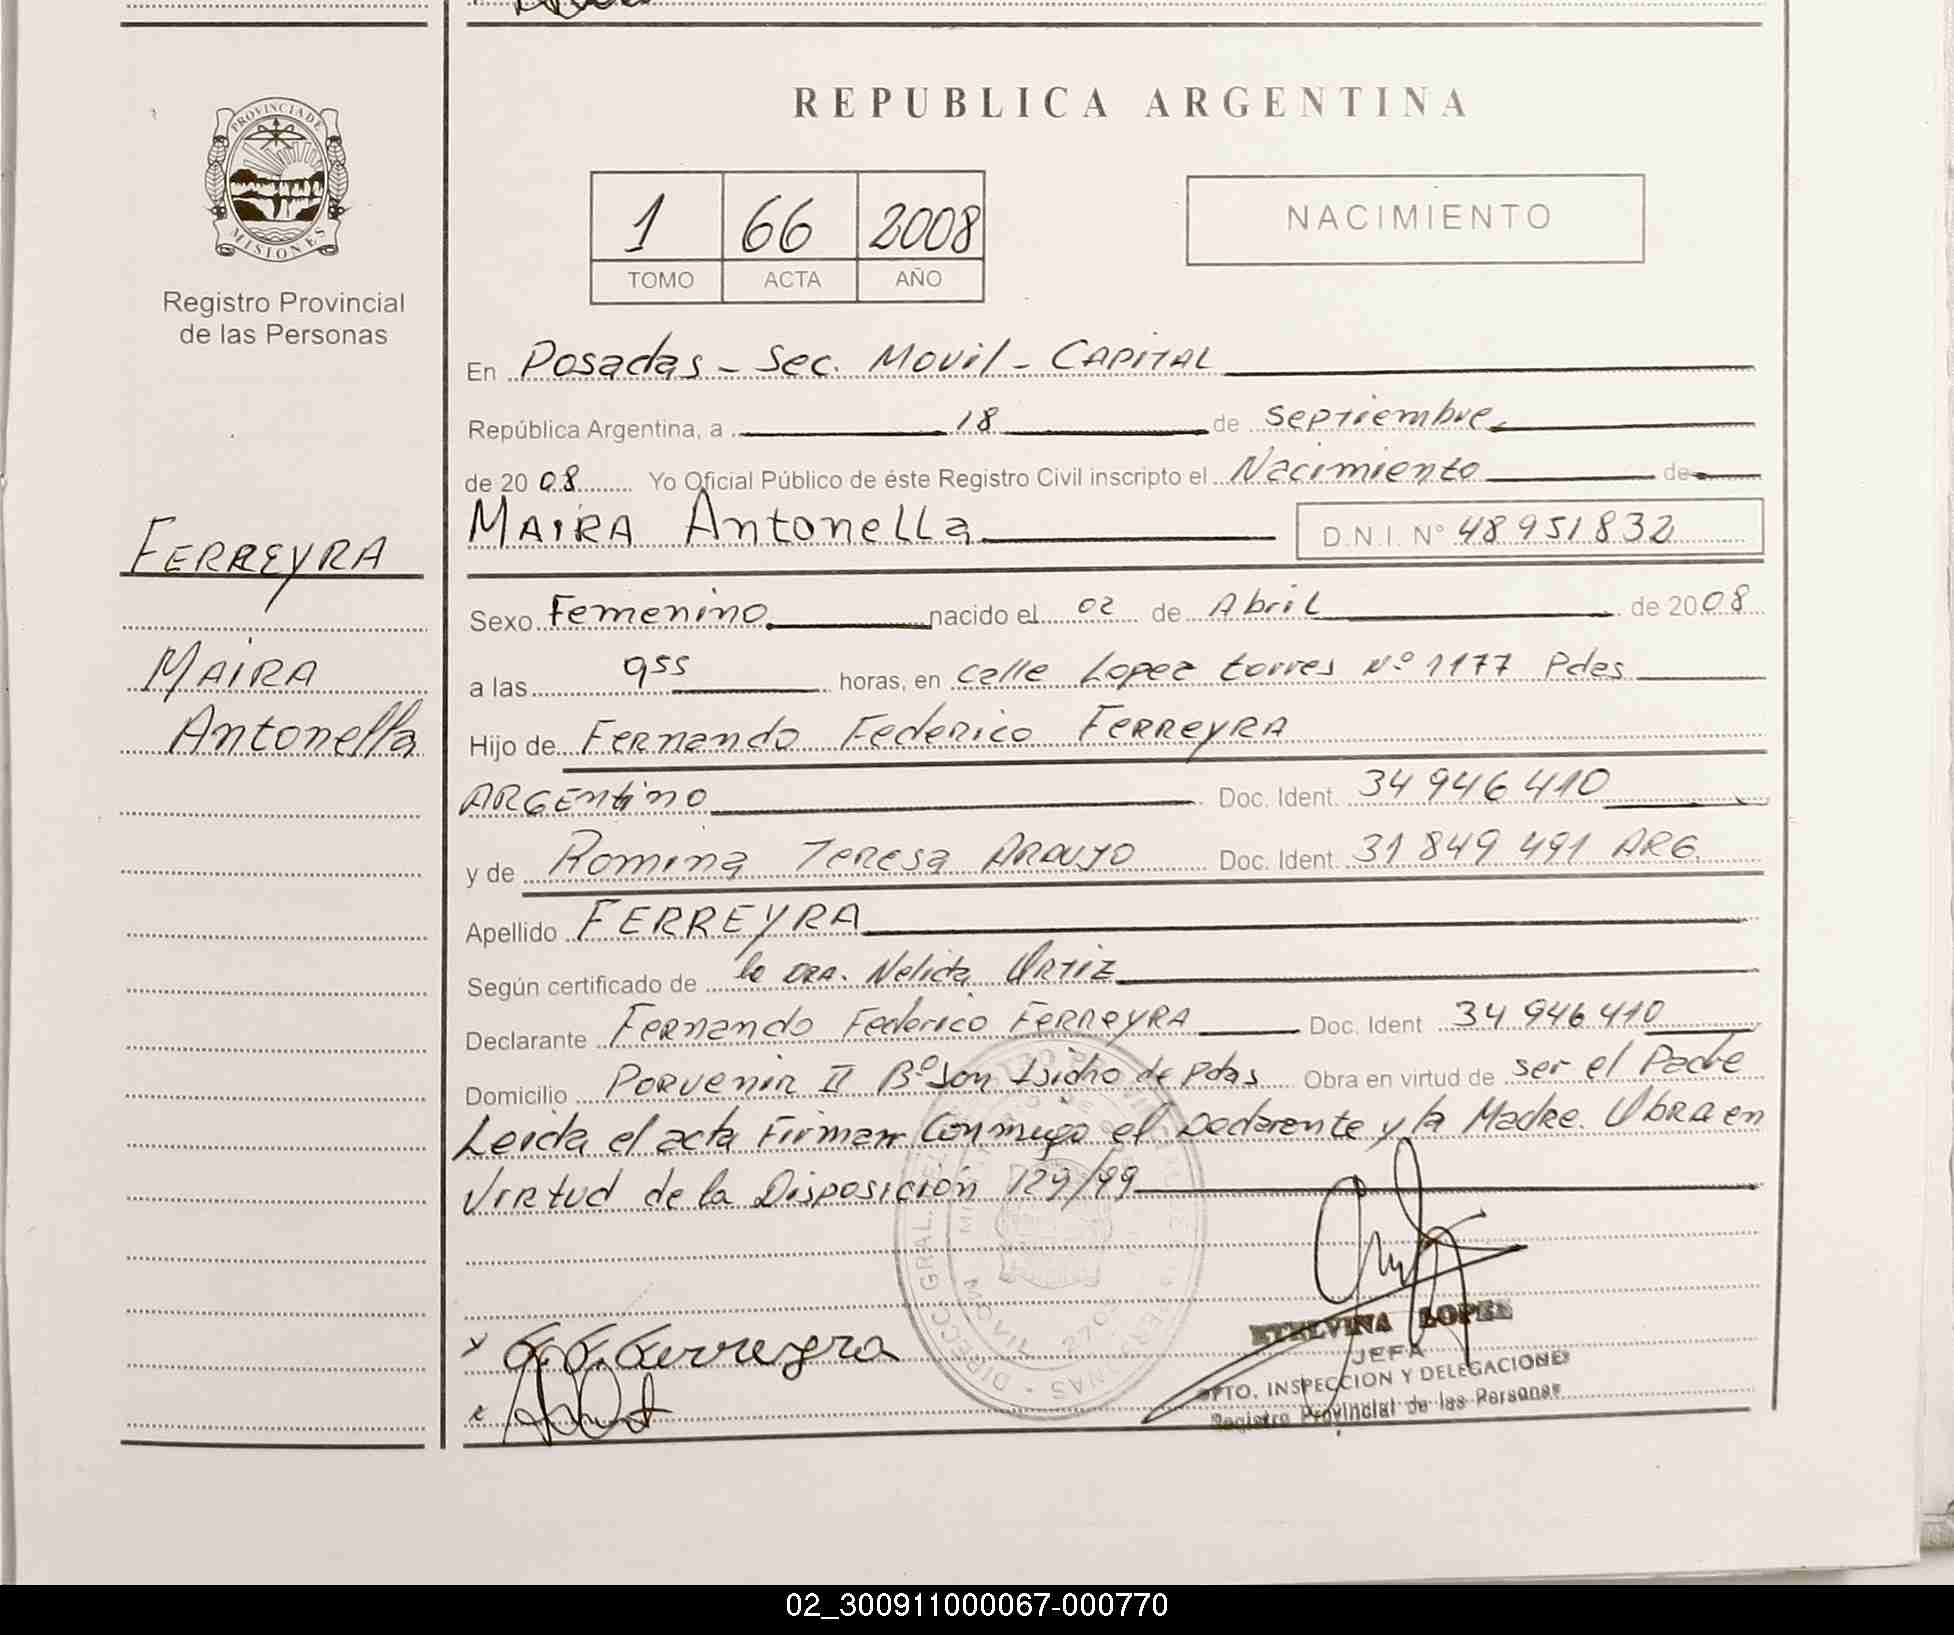 PROVINCIA DE
MISIONES
Registro Provincial
de las Personas
FERREYRA
MAIRA
Antonella
REPUBLICA ARGENTINA
1 66 2008
TOMO ACTA AÑO
NACIMIENTO
En Posadas - Sec. Movil - CAPITAL
República Argentina, a 18 de Septiembre
de 2008 Yo Oficial Público de éste Registro Civil inscripto el Nacimiento de
MAIRA Antonella D.N.I. N° 48951832
Sexo Femenino nacido el 02 de Abril de 2008
a las 9 55 horas, en calle Lopez torres N° 1177 Pdas
Hijo de Fernando Federico FERREYRA
ARGENtino Doc. Ident. 34 946 410
y de Romina Teresa ARAUJO Doc. Ident. 31 849 491 ARG.
Apellido FERREYRA
Según certificado de la DRA. Nelida ORTIZ
Declarante Fernando Federico FERREYRA Doc. Ident 34 946 410
Domicilio PORVENIR II B° San Isidro de Pdas Obra en virtud de ser el Padre
Leida el acta Firman Conmigo el Declarante y la Madre. Obra en
VIRtud de la Disposición 129/99
F. F. Ferreyra
ETELVINA LOPEZ
JEFA
DPTO. INSPECCION Y DELEGACIONES
Registro Provincial de las Personas
02_300911000067-000770